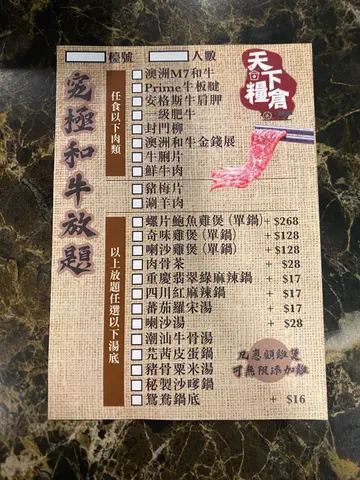 檯號 人數
天下糧倉
究極和牛放題
任食以下肉類
澳洲M7和牛
Prime牛板腱
安格斯牛肩胛
一級肥牛
封門柳
澳洲和牛金錢展
牛脷片
鮮牛肉
豬梅片
涮羊肉
以上放題任選以下湯底
螺片鮑魚雞煲(單鍋) + $268
奇味雞煲(單鍋) + $128
喇沙雞煲(單鍋) + $128
肉骨茶 + $28
重慶翡翠綠麻辣鍋 + $17
四川紅麻辣鍋 + $17
番茄羅宋湯 + $17
喇沙湯 + $28
潮汕牛骨湯
芫茜皮蛋鍋
豬骨粟米湯
秘製沙嗲鍋
鴛鴦鍋底 + $16
凡惠顧雞煲
可無限添加雞